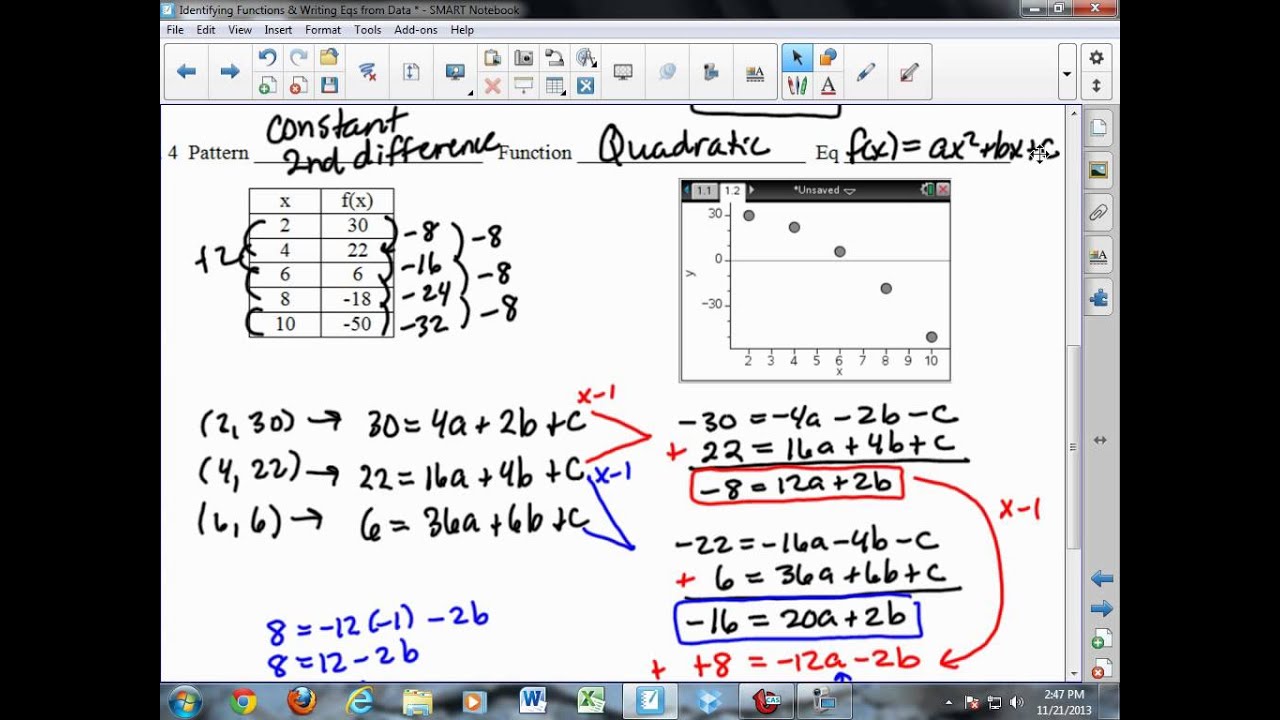 Identifying Functions & Writing Eqs from Data * - SMART Notebook
File Edit View Insert Format Tools Add-ons Help
constant
2nd difference
4 Pattern Function Quadratic Eq f(x) = ax²+bx+c
x f(x)
2 30
4 22
6 6
8 -18
10 -50
+2
-8
-16
-24
-32
-8
-8
-8
1.1 1.2 *Unsaved
30
0
-30
y
2 3 4 5 6 7 8 9 10
x
x-1
(2, 30) → 30 = 4a + 2b + c
(4, 22) → 22 = 16a + 4b + c x-1
(6, 6) → 6 = 36a + 6b + c
-30 = -4a - 2b - c
+ 22 = 16a + 4b + c
-8 = 12a + 2b
x-1
-22 = -16a - 4b - c
+ 6 = 36a + 6b + c
-16 = 20a + 2b
+ +8 = -12a - 2b
8 = -12(-1) - 2b
8 = 12 - 2b
2:47 PM
11/21/2013